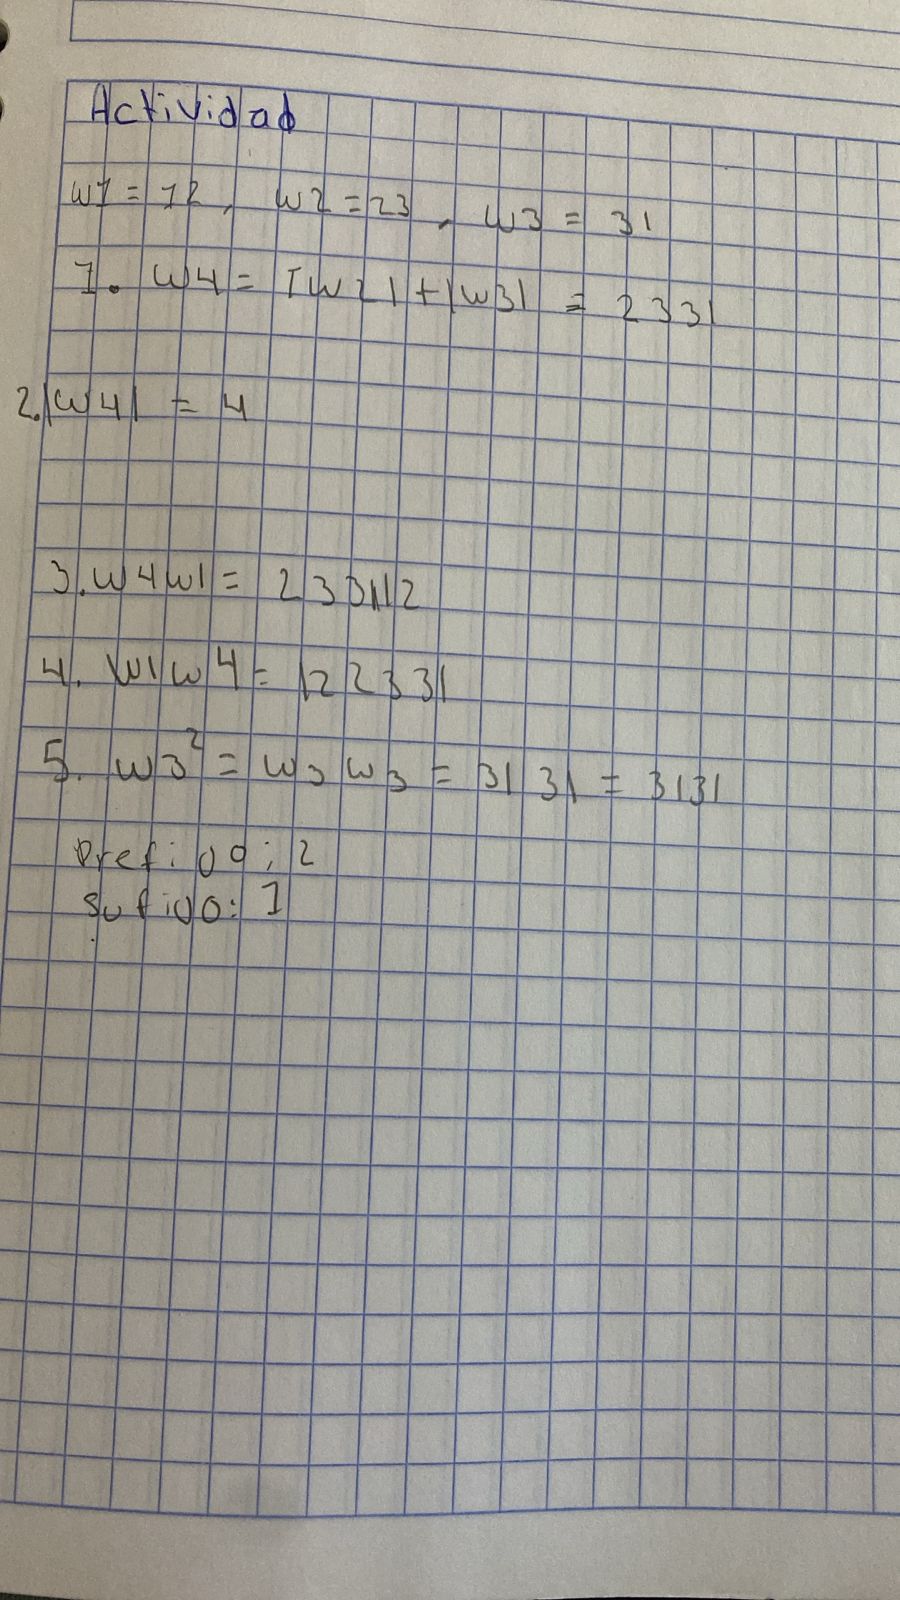 Actividad
w1 = 12, w2 = 23, w3 = 31
1. w4 = |w2| + |w3| = 2331
2. |w4| = 4
3. w4w1 = 233112
4. w1w4 = 122331
5. w3² = w3w3 = 31 31 = 3131
Prefijo: 2
Sufijo: 1